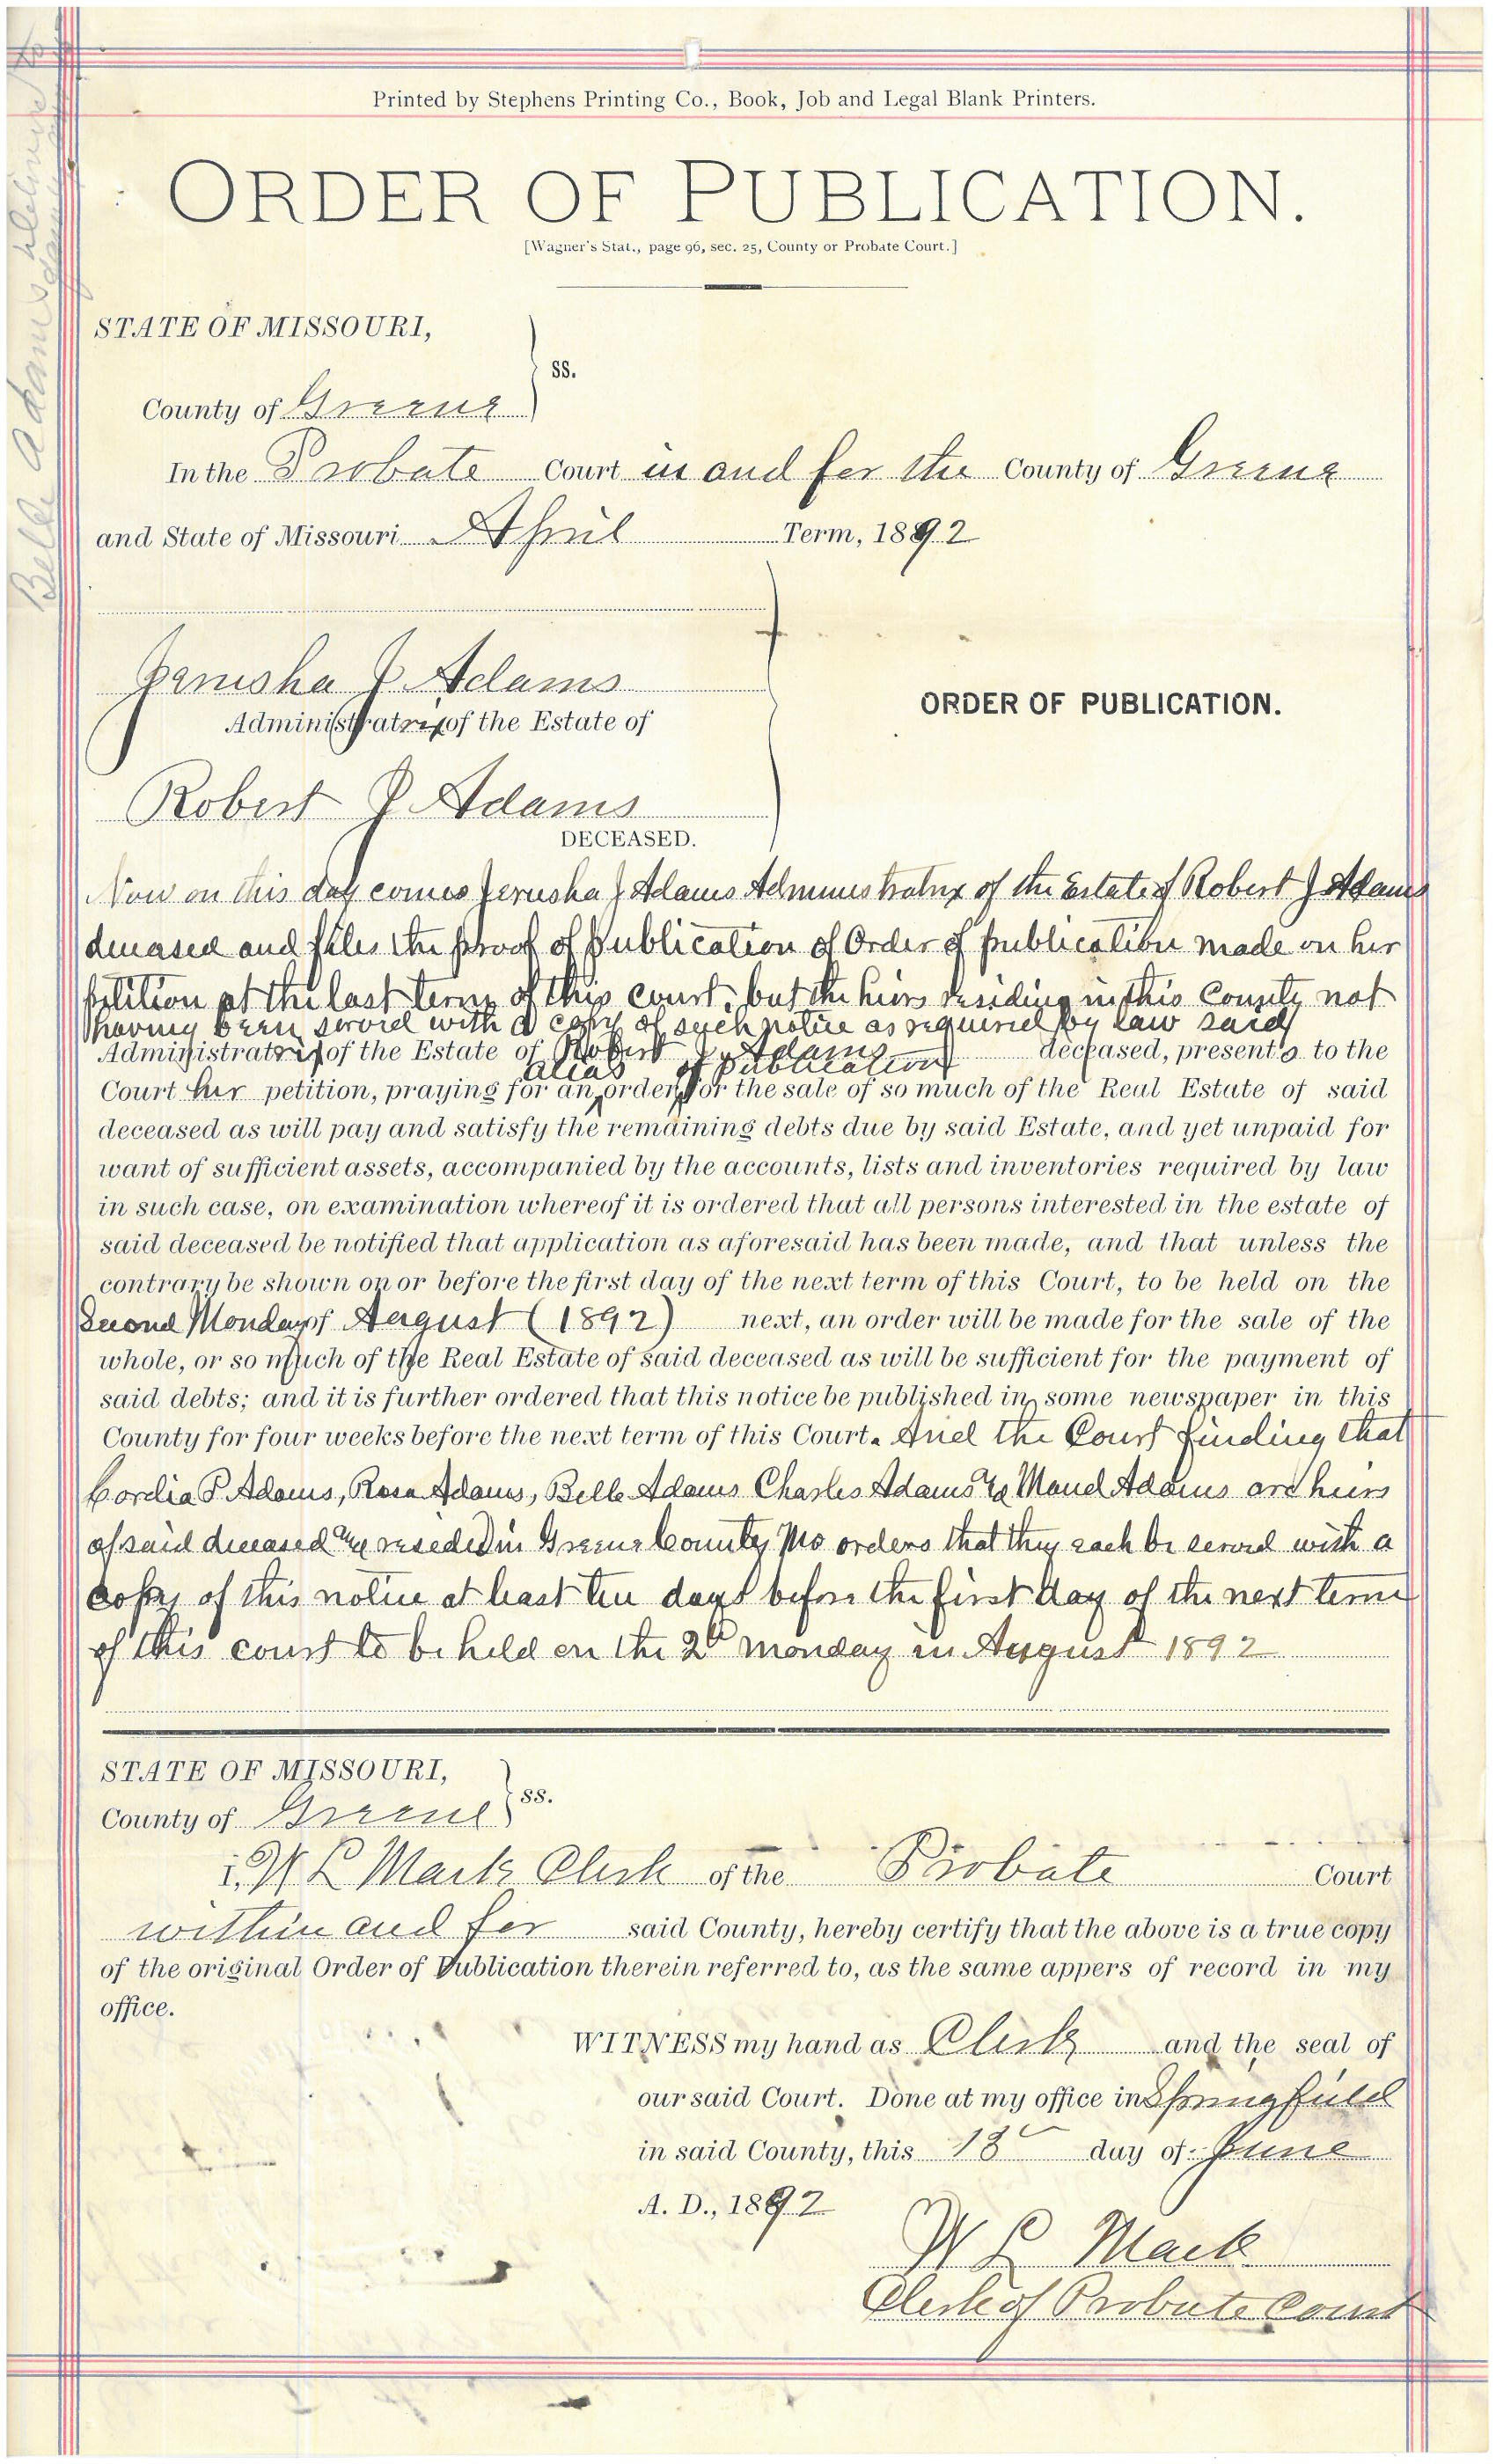 Printed by Stephens Printing Co., Book, Job and Legal Blank Printers.
ORDER OF PUBLICATION.
[Wagner's Stat., page 96, sec. 25, County or Probate Court.]
STATE OF MISSOURI,
ss.
County of Greene
In the Probate Court in and for the County of Greene
and State of Missouri April Term, 1892
Jerusha J Adams
Administratrix of the Estate of
ORDER OF PUBLICATION.
Robert J Adams
DECEASED.
Now on this day comes Jerusha J Adams Administratrix of the Estate of Robert J Adams
deceased and files the proof of publication of Order of publication made on her
petition at the last term of this court, but the heirs residing in this County not
having been served with a copy of such notice as required by law said
Administratrix of the Estate of Robert J. Adams deceased, presents to the
alias of Publication
Court her petition, praying for an order for the sale of so much of the Real Estate of said
deceased as will pay and satisfy the remaining debts due by said Estate, and yet unpaid for
want of sufficient assets, accompanied by the accounts, lists and inventories required by law
in such case, on examination whereof it is ordered that all persons interested in the estate of
said deceased be notified that application as aforesaid has been made, and that unless the
contrary be shown on or before the first day of the next term of this Court, to be held on the
Second Monday of August (1892) next, an order will be made for the sale of the
whole, or so much of the Real Estate of said deceased as will be sufficient for the payment of
said debts; and it is further ordered that this notice be published in some newspaper in this
County for four weeks before the next term of this Court. And the Court finding that
Cordia P Adams, Rosa Adams, Belle Adams Charles Adams & Maud Adams are heirs
of said deceased and resided in Greene County Mo orders that they each be served with a
copy of this notice at least ten days before the first day of the next term
of this court to be held on the 2d Monday in August 1892
STATE OF MISSOURI,
ss.
County of Greene
I, W L Mack Clerk of the Probate Court
within and for said County, hereby certify that the above is a true copy
of the original Order of Publication therein referred to, as the same appers of record in my
office.
WITNESS my hand as Clerk and the seal of
our said Court. Done at my office in Springfield
in said County, this 13 day of June
A. D., 1892
W L Mack
Clerk of Probate Court
Belle Adams